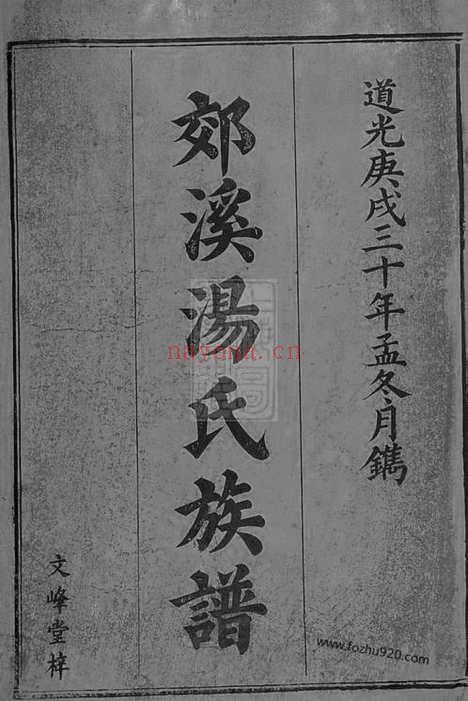 道光庚戌三十年孟冬月鐫
郊溪湯氏族譜
文峰堂梓
nayona.cn
www.fozhu920.com